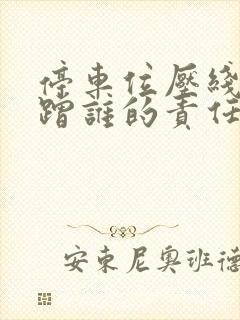 停車位壓綫
蹭誰的責任
安東尼奧班德